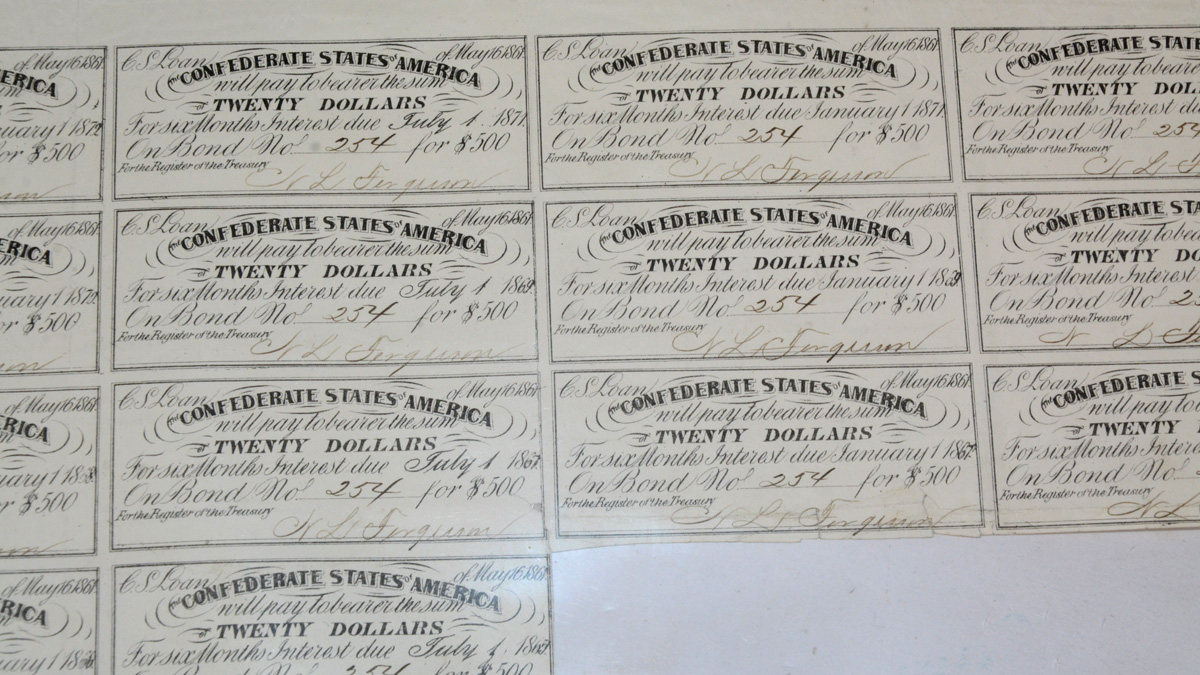 of May 16 1861
ERICA
uary 1 1872
or $500
C.S. Loan of May 16 1861
the CONFEDERATE STATES of AMERICA
will pay to bearer the sum
of TWENTY DOLLARS
For six Months Interest due July 1 1871
On Bond No. 254 for $500
For the Register of the Treasury
N L Ferguson
C.S. Loan of May 16 1861
the CONFEDERATE STATES of AMERICA
will pay to bearer the sum
of TWENTY DOLLARS
For six Months Interest due January 1 1871
On Bond No. 254 for $500
For the Register of the Treasury
N L Ferguson
C.S. Loan
the CONFEDERATE STATE
will pay to beare
of TWENTY DOL
For six Months Interest d
On Bond No. 254
For the Register of the Treasury
N L F
of May 16 1861
ERICA
uary 1
or $500
C.S. Loan of May 16 1861
the CONFEDERATE STATES of AMERICA
will pay to bearer the sum
of TWENTY DOLLARS
For six Months Interest due July 1 1869
On Bond No. 254 for $500
For the Register of the Treasury
N L Ferguson
C.S. Loan of May 16 1861
the CONFEDERATE STATES of AMERICA
will pay to bearer the sum
of TWENTY DOLLARS
For six Months Interest due January 1 1869
On Bond No. 254 for $500
For the Register of the Treasury
N L Ferguson
C.S. Loan
the CONFEDERATE STA
will pay to bea
of TWENTY DO
For six Months Interest
On Bond No. 2
For the Register of the Treasury
N L F
of May 16 1861
ERICA
uary 1
or $500
C.S. Loan of May 16 1861
the CONFEDERATE STATES of AMERICA
will pay to bearer the sum
of TWENTY DOLLARS
For six Months Interest due July 1 1867
On Bond No. 254 for $500
For the Register of the Treasury
N L Ferguson
C.S. Loan of May 16 1861
the CONFEDERATE STATES of AMERICA
will pay to bearer the sum
of TWENTY DOLLARS
For six Months Interest due January 1 1867
On Bond No. 254 for $500
For the Register of the Treasury
N L Ferguson
C.S. Loan
the CONFEDERATE S
will pay to
of TWENTY
For six Months Intere
On Bond No.
For the Register of the Treasury
N L
of May 16 1861
ERICA
uary 1
C.S. Loan of May 16 1861
the CONFEDERATE STATES of AMERICA
will pay to bearer the sum
of TWENTY DOLLARS
For six Months Interest due July 1
254 for $500